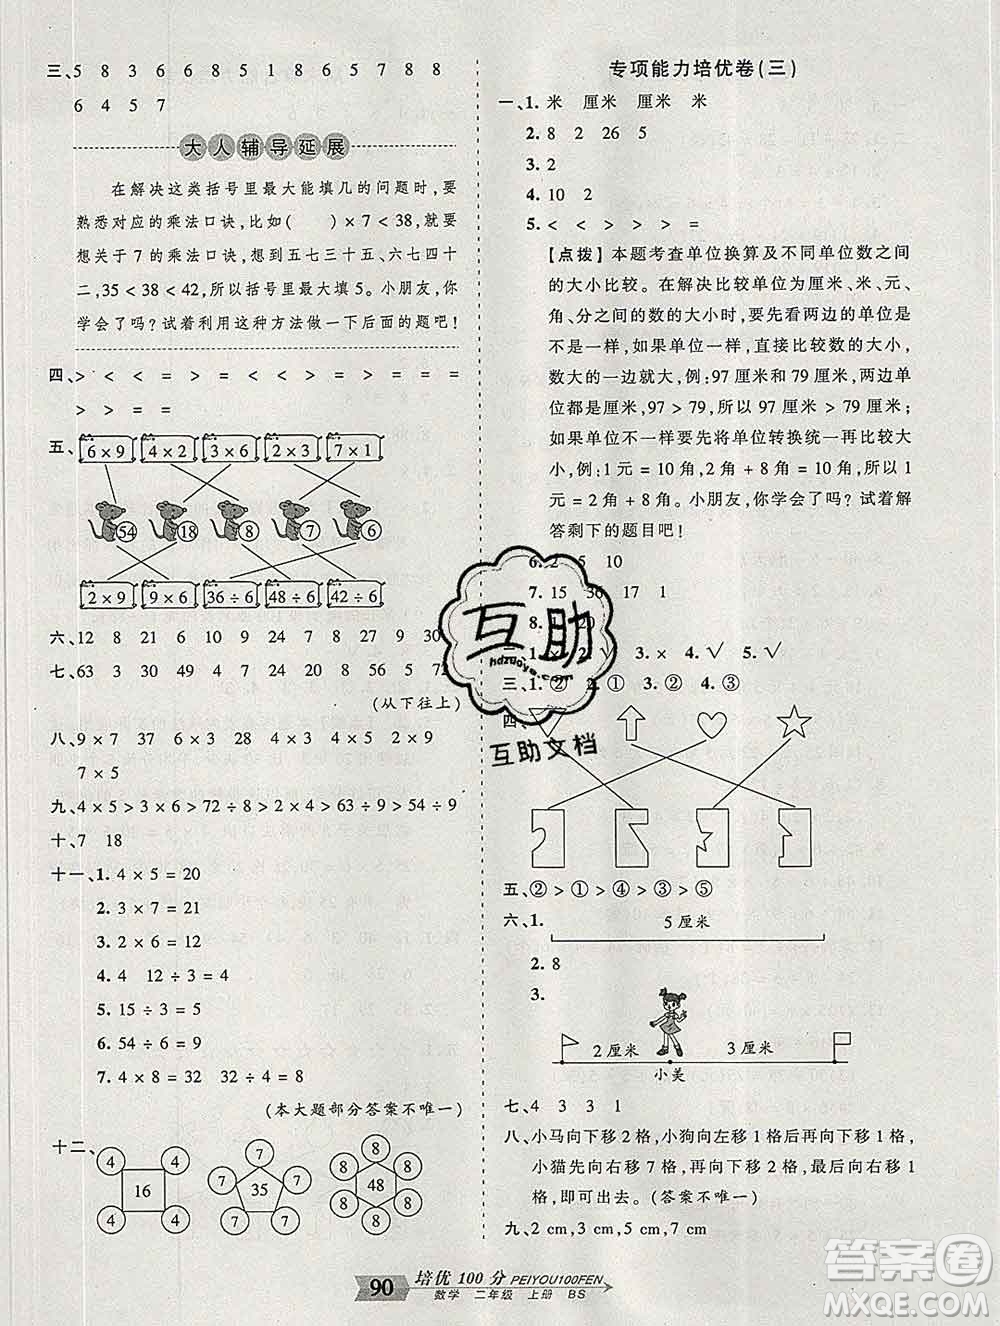 三、5 8 3 6 6 8 5 1 8 6 5 7 8 8
6 4 5 7
大人辅导延展
在解决这类括号里最大能填几的问题时,要
熟悉对应的乘法口诀,比如( )×7<38,就要
想关于7的乘法口诀,想到五七三十五、六七四十
二,35<38<42,所以括号里最大填5。小朋友,你
学会了吗?试着利用这种方法做一下后面的题吧!
四、> < < = > = < < > = > = =
> > = =
五、6×9 4×2 3×6 2×3 7×1
54 18 8 7 6
2×9 1×6 36÷6 48÷6 42÷6
六、12 8 21 6 10 9 20 7 9 30
七、63 3 30 49 4 7 21 56 5 72
(从下往上)
八、9×7 37 6×3 28 45 2×9
7×5
九、4×5>3×6>72÷8>2×4>63÷9>54÷9
十、7 18
十一、1. 4×5=20
2. 3×7=21
3. 2×3=6
4. 4 12÷3=4
5. 15÷3=5
6. 54÷6=9
7. 4×8=32 32÷4=8
(本大题部分答案不唯一)
十二、4 4 16 4 4
7 7 7 35 7 7
8 8 8 48 8 8 8
专项能力培优卷(三)
一、1. 米 厘米 厘米 米
2. 8 2 26 5
3. 2
4. 10 2
5. < < > > > =
【点拨】本题考查单位换算及不同单位数之间
的大小比较。在解决比较单位为厘米、米、元、
角、分之间的数的大小时,要先看两边的单位是
不是一样,如果单位一样,直接比较数的大小,
数大的一边就大,例:97厘米>79厘米,两边单
位都是厘米,97>79,所以97厘米>79厘米;
如果单位不一样要先将单位转换统一再比较大
小,例:1元=10角,2角+8角=10角,所以1
元=2角+8角。小朋友,你学会了吗?试着解
答剩下的题目吧!
6. 2 5 10
7. 15 30 17 1
8. 20
二、1. × 2. √ 3. × 4. √ 5. √
三、1. ② 2. ① 3. ② 4. ③
四、
五、②>①>④>③>⑤
六、1. 5厘米
2. 8
3.
2厘米 3厘米
小美
七、4 3 3 1
八、小马向下移2格,小狗向左移1格后再向下移2格,
小猫先向右移7格,再向下移1格,最后向右移1
格,即可出去。(答案不唯一)
九、2 cm,3 cm,5 cm,7 cm
互助
hdzuoye.com
互助文档
90 培优100分 PEIYOU100FEN
数学 二年级 上册 BS
答案圈
MXQE.COM